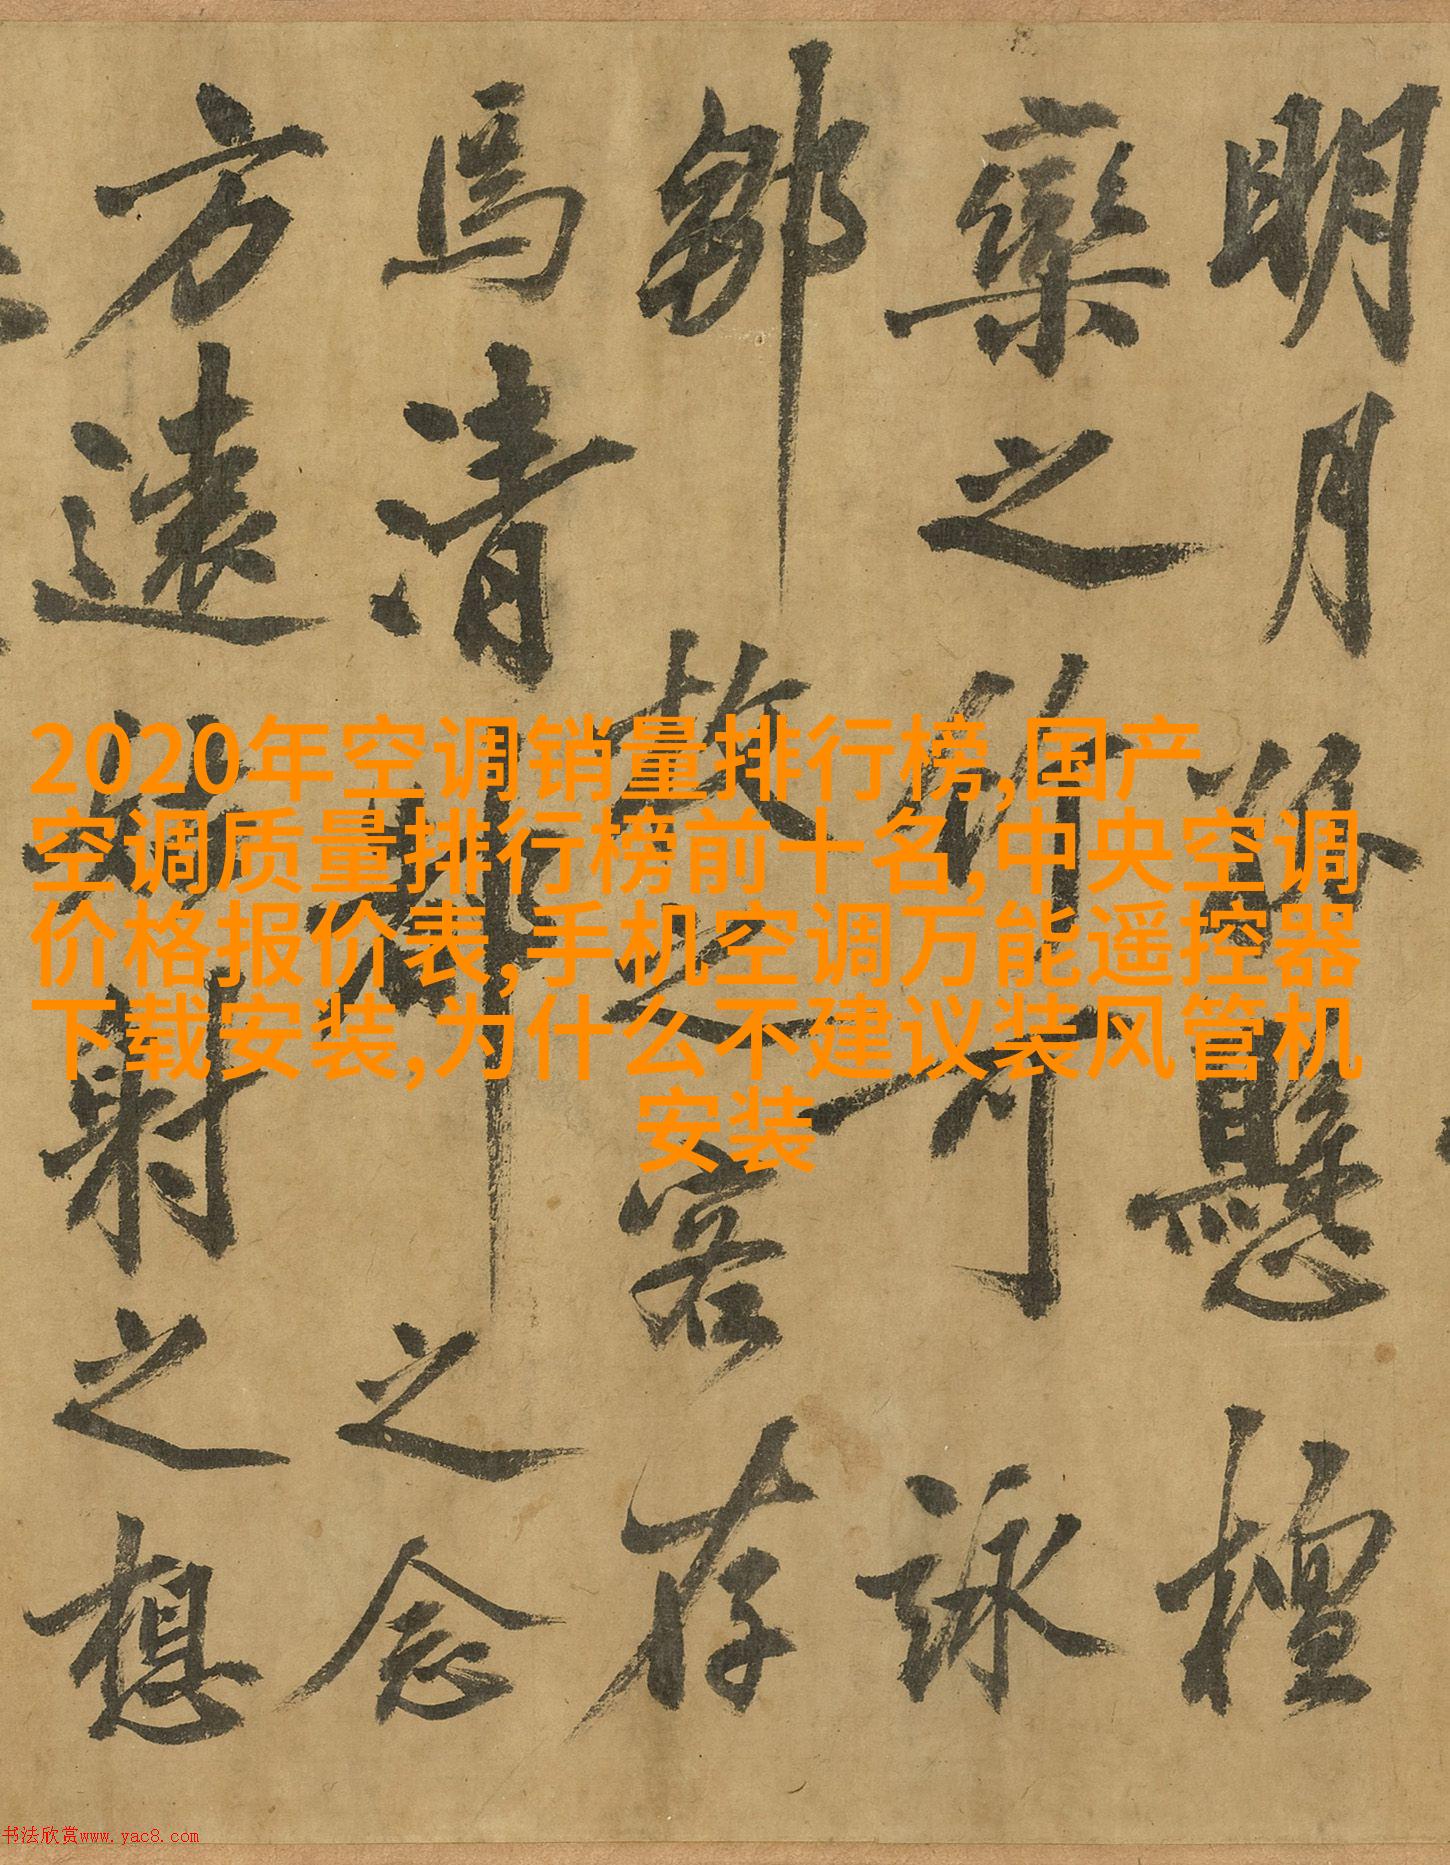 明月懸檀
欒之竹可詠
鄒枚之客存
焉清之念
方遠姑射之想
2020年空调销量排行榜,国产
空调质量排行榜前十名,中央空调
价格报价表,手机空调万能遥控器
下载安装,为什么不建议装风管机
安装
书法欣赏www.yac8.com